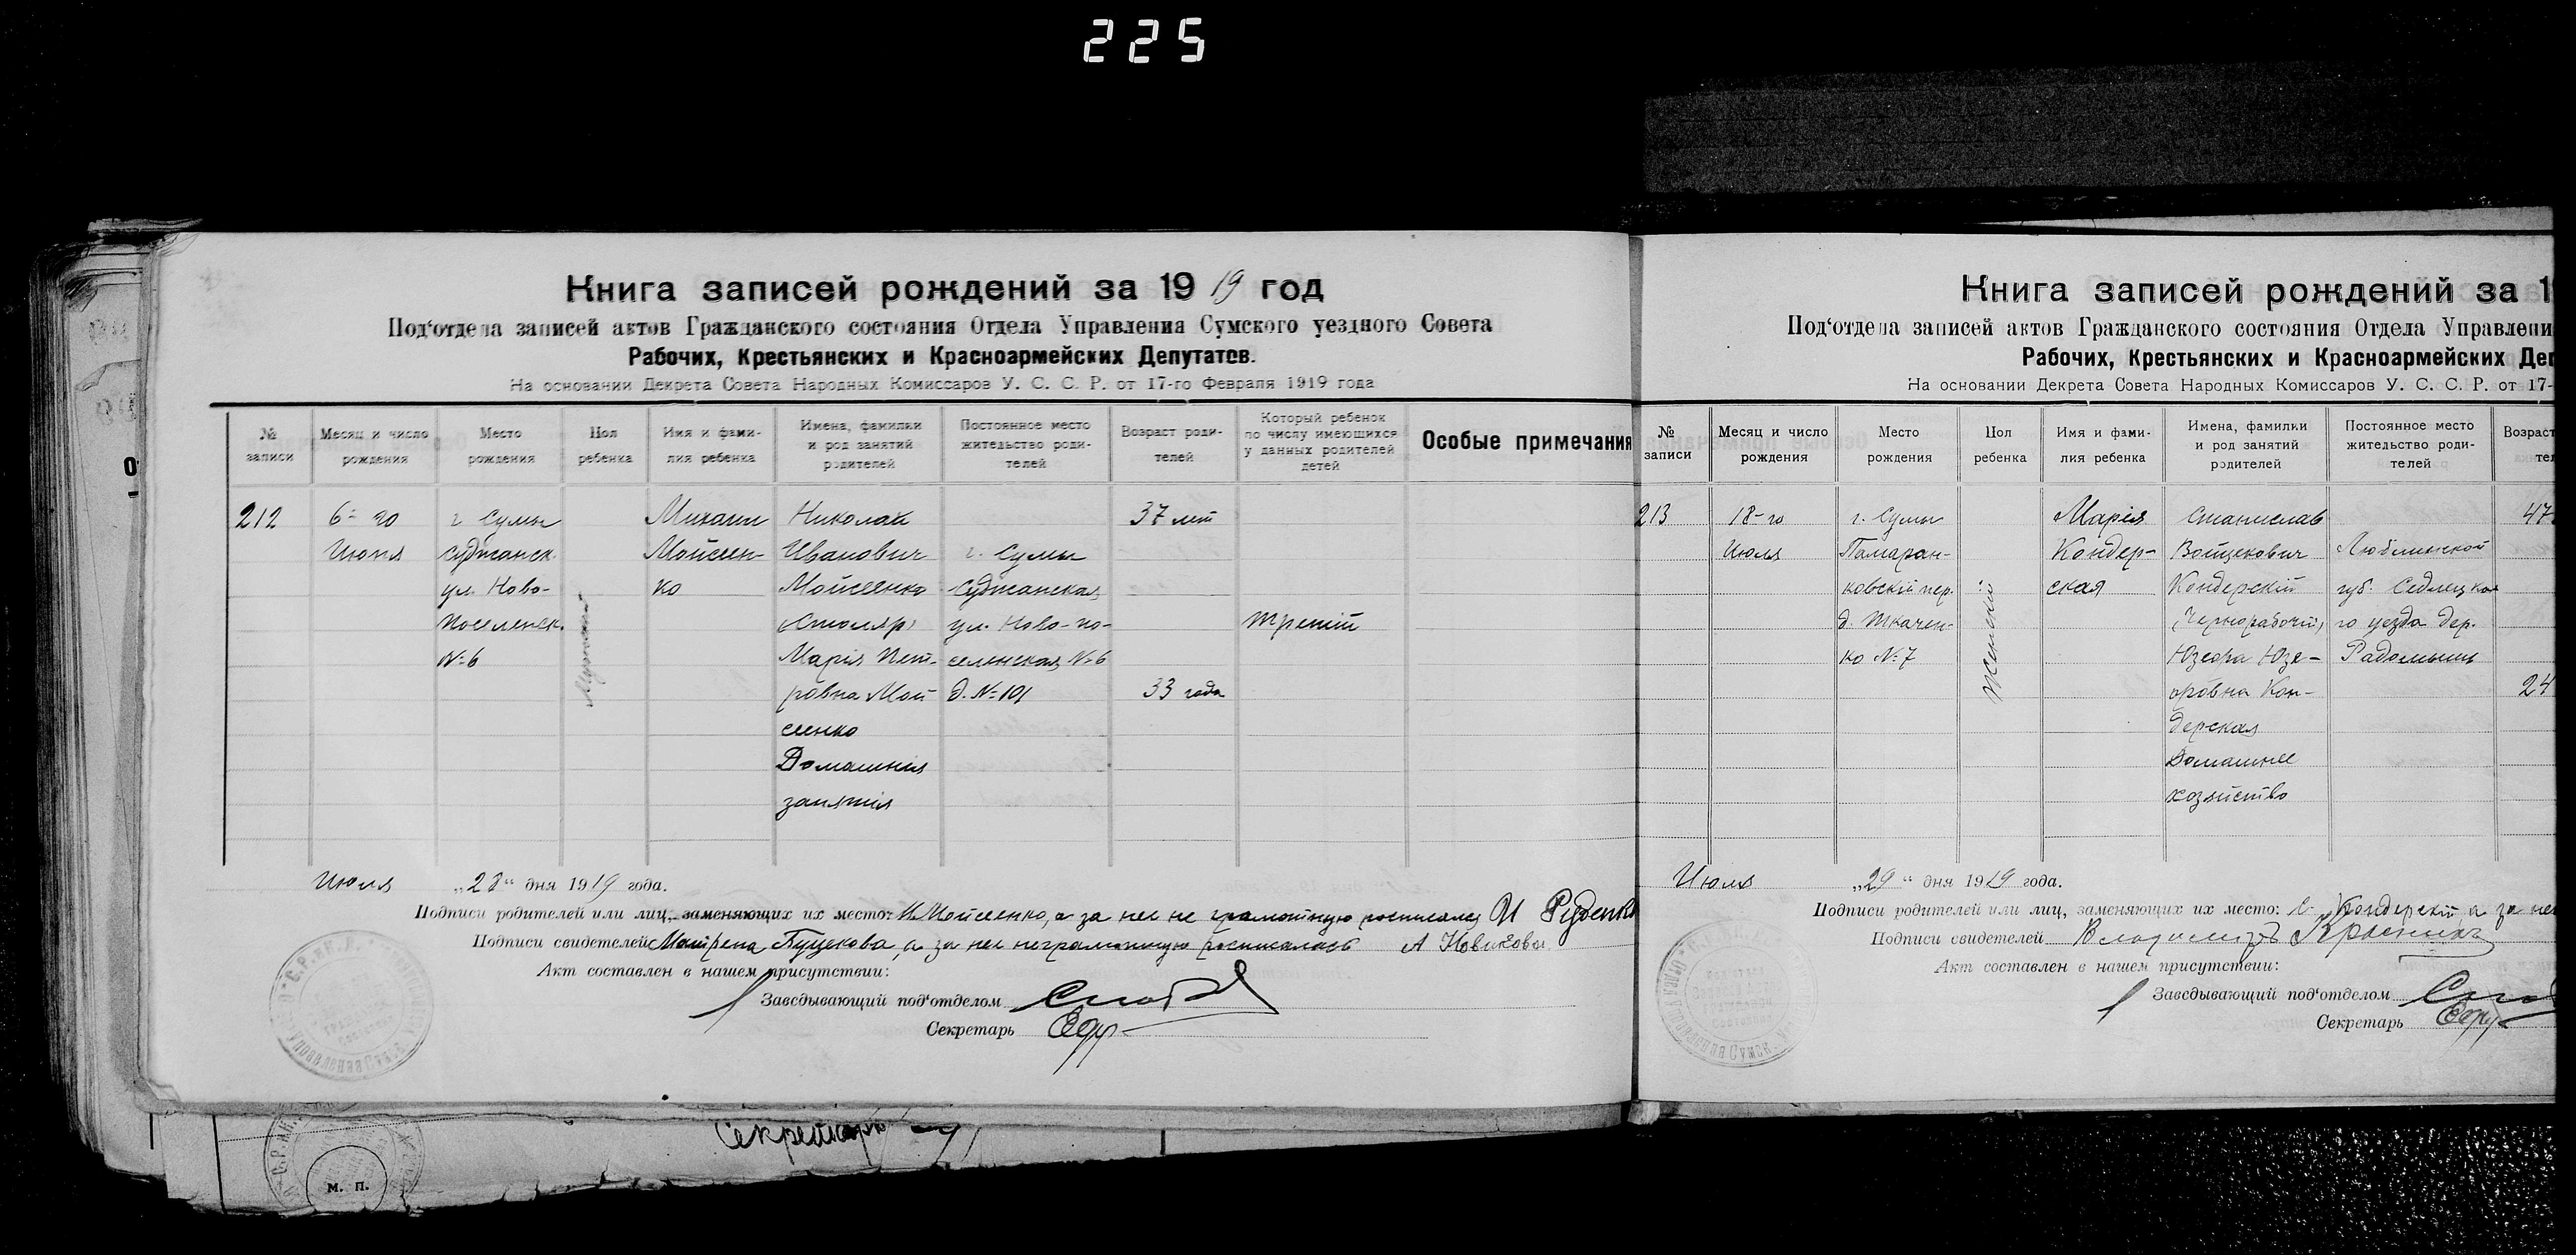 225
Книга записей рождений за 1919 год
Под‘отдела записей актов Гражданского состояния Отдела Управления Сумского уездного Совета
Рабочих, Крестьянских и Красноармейских Депутатов.
На основании Декрета Совета Народных Комиссаров У. С. С. Р. от 17-го Февраля 1919 года
№ записи
Месяц и число рождения
Место рождения
Пол ребенка
Имя и фами-
лия ребенка
Имена, фамилии
и род занятий
родителей
Постоянное место
жительство роди-
телей
Возраст роди-
телей
Который ребенок
по числу имеющихся
у данных родителей
детей
Особые примечания
212
6-го
Июля
г. Сумы
Суджанск.
ул. Ново-
поселенск.
№ 6
Мужской
Михаил
Мойсеен-
ко
Николай
Иванович
Мойсеенко
(Столяр)
Марія Пет-
ровна Мой
сеенко
Домашнія
занятія
г. Сумы
Суджанская
ул. Ново-по-
селенская №6
д. № 101
37 лет
33 года
Третій
Июля „28“ дня 1919 года.
Подписи родителей или лиц, заменяющих их место: Н Мойсеенко, а за нее не грамотную росписался И Руденко
Подписи свидетелей Матрена Пуцекова, а за нее неграмотную росписалась А Новикова
Акт составлен в нашем присутствии:
Заведывающий под‘отделом
Секретарь
Секретарь
М. П.
Книга записей рождений за 1
Под‘отдела записей актов Гражданского состояния Отдела Управлени
Рабочих, Крестьянских и Красноармейских Деп
На основании Декрета Совета Народных Комиссаров У. С. С. Р. от 17-
№ записи
Месяц и число рождения
Место рождения
Пол ребенка
Имя и фами-
лия ребенка
Имена, фамилии
и род занятий
родителей
Постоянное место
жительство роди-
телей
Возраст
тел
213
18-го
Июля
г. Сумы
Памаран-
ковскій пер.
д. Ткачен-
ко № 7
Женскій
Марія
Кондер-
ская
Станислав
Войцехович
Кондерскій
(Чернорабочій)
Юзефа Юзе-
фовна Кон-
дерская
Домашнее
хозяйство
Люблинской
губ. Седлецка
го уезда дер.
Радомышь
47
24
Июля „29“ дня 1919 года.
Подписи родителей или лиц, заменяющих их место: С. Кондерскій, а за не
Подписи свидетелей Владимиръ
Акт составлен в нашем присутствии:
Заведывающий под‘отделом
Секретарь